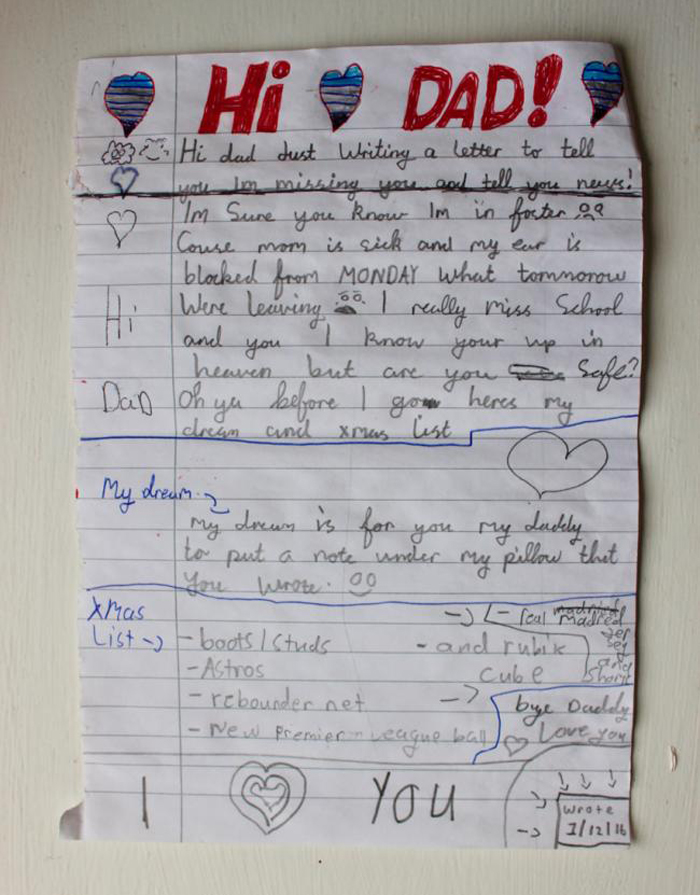 Hi DAD!
Hi dad Just Writing a letter to tell
you Im missing you and tell you news!
Im Sure you know Im in foster
Couse mom is sick and my ear is
blocked from MONDAY What tommorow
Were leaving I really miss School
and you I know your up in
heaven but are you Safe?
Oh ya before I go heres my
dream and xmas list
Hi
DaD
My dream
My dream is for you my daddy
to put a note under my pillow that
you wrote.
xmas
List
- boots/studs
- Astros
- rebounder net
- New Premier League ball
- real madred
jersey
and
Short
- and rubix
cube
bye Daddy
Love you
I YOU
Wrote
1/12/16